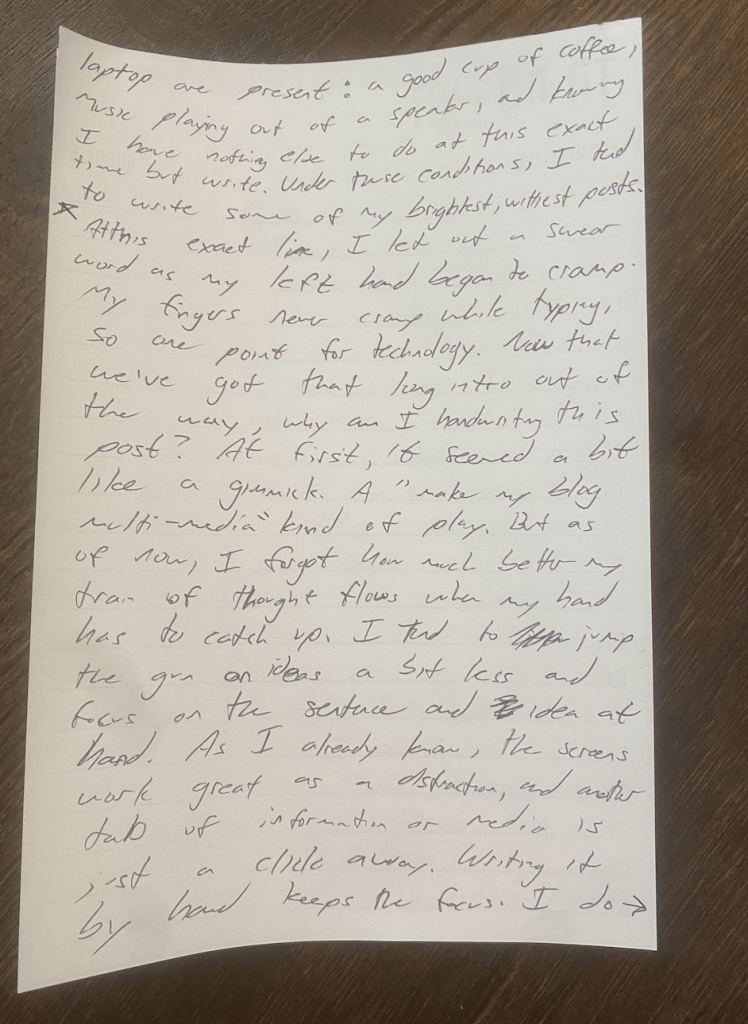 laptop are present: a good cup of coffee,
Music playing out of a speaker, and knowing
I have nothing else to do at this exact
time but write. Under these conditions, I tend
to write some of my brightest, wittiest posts.
* At this exact line, I let out a swear
word as my left hand began to cramp.
My fingers never cramp while typing,
so one point for technology. Now that
we've got that long intro out of
the way, why am I handwriting this
post? At first, it seemed a bit
like a gimmick. A "make my blog
multi-media" kind of play. But as
of now, I forgot how much better my
train of thought flows when my hand
has to catch up. I tend to jump
the gun on ideas a bit less and
focus on the sentence and idea at
hand. As I already know, the screens
work great as a distraction, and another
tab of information or media is
just a click away. Writing it
by hand keeps the focus. I do →